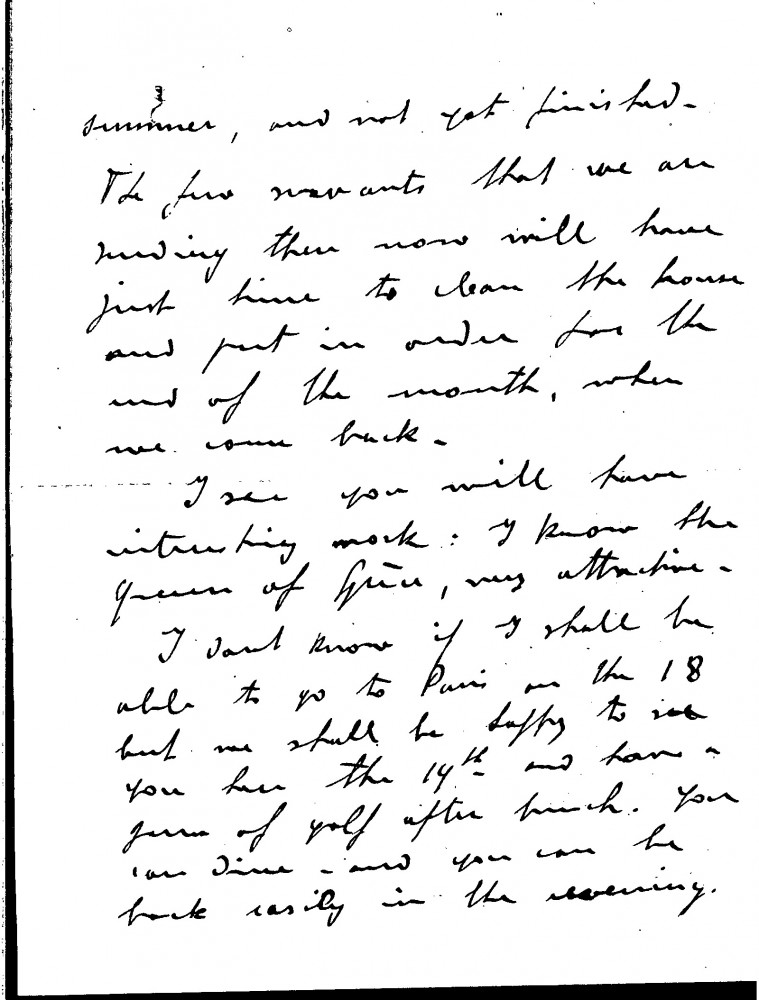 summer, and not yet finished -
The few servants that we are
sending there now will have
just time to clean the house
and put in order for the
end of the month, when
we come back -
I see you will have
interesting work : I know the
Queen of Grèce, very attractive -
I dont know if I shall be
able to go to Paris on the 18
but we shall be happy to see
you here the 19th and have a
game of golf after lunch. You
can dine - and you can be
back easily in the evening.